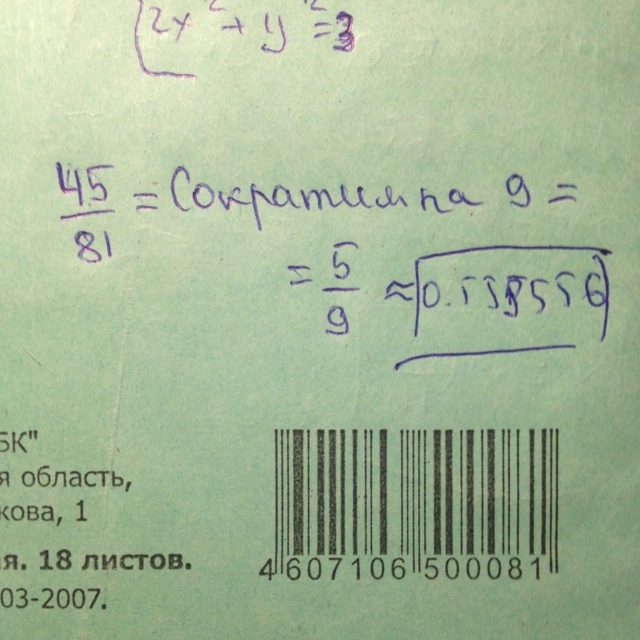 2x² + y² = 3
45/81 = Сократим на 9 =
= 5/9 ≈ 0.555556
БК"
я область,
кова, 1
я. 18 листов.
03-2007.
4 607106 500081